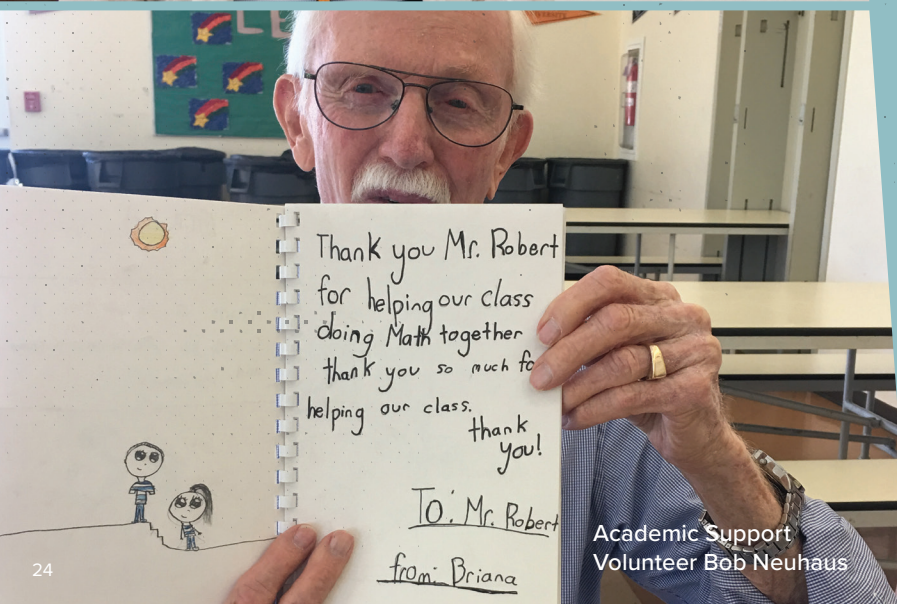 Thank you Mr. Robert
for helping our class
doing Math together
thank you so much fo
helping our class.
thank
you!
To: Mr. Robert
from: Briana
Academic Support
Volunteer Bob Neuhaus
24